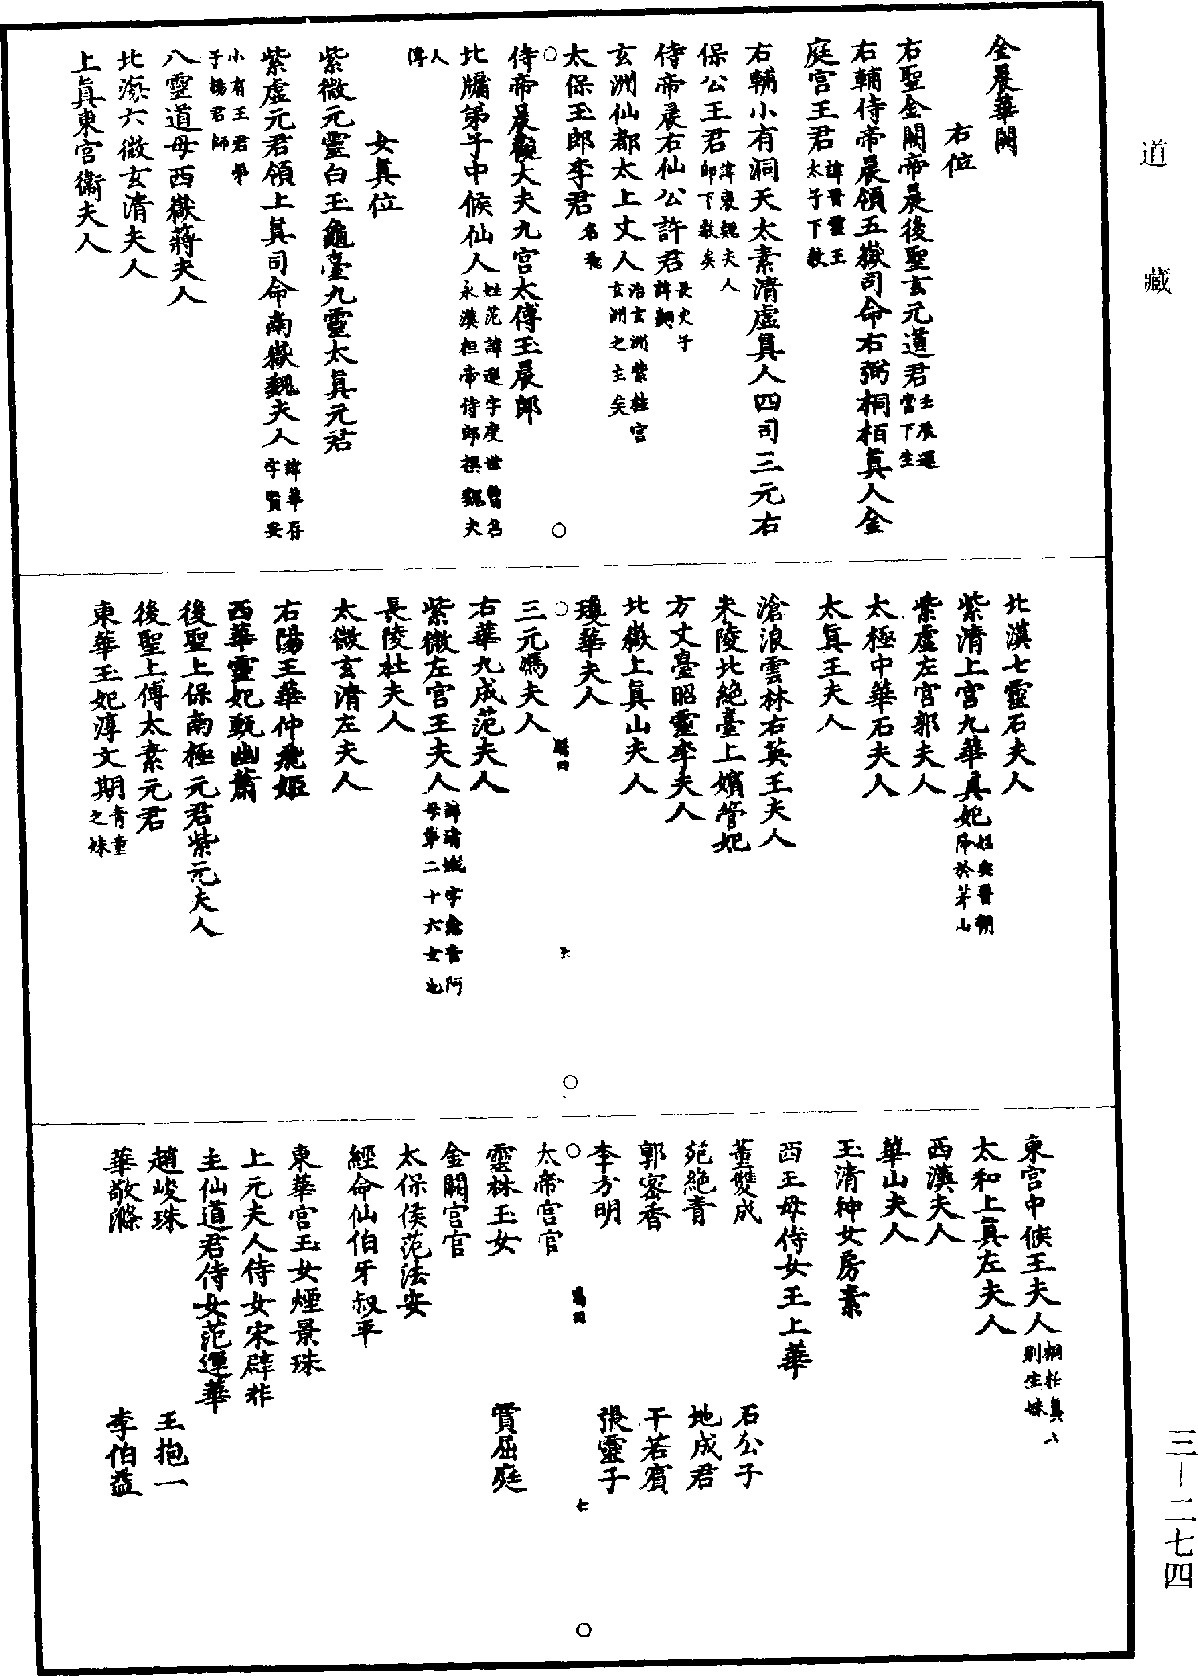 道藏
金晨華闕
右位
右聖金闕帝晨後聖玄元道君壬辰運當下生
右輔侍帝晨領五嶽司命右弼桐栢真人金
庭宫王君諱晉靈王太子下教
右輔小有洞天太素清虛真人四司三元右
保公王君諱褒魏夫人師下教矣
侍帝晨右仙公許君長史子諱翽
玄洲仙都太上丈人治玄洲紫桂宫玄洲之主矣
太保玉郎李君名飛
侍帝晨觀大夫九宫太傅玉晨郎
北牖弟子中候仙人姓范諱邈字度世曾名永漢桓帝侍郎撰魏夫
人傳
女真位
紫微元靈白玉龜臺九靈太真元君
紫虛元君領上真司命南嶽魏夫人諱華存字賢安
小有王君學子楊君師
八靈道母西嶽蔣夫人
北海六微玄清夫人
上真東宫衛夫人
北漢七靈石夫人
紫清上宫九華真妃姓安晉朝降於茅山
紫虛左宫郭夫人
太極中華石夫人
太真王夫人
滄浪雲林右英王夫人
朱陵北絕臺上嬪管妃
方丈臺昭靈李夫人
北嶽上真山夫人
瓊華夫人
三元馮夫人
右華九成范夫人
紫微左宫王夫人諱清娥字愈音阿母第二十六女也
長陵杜夫人
太微玄清左夫人
右陽王華仲飛姬
西華靈妃甄幽蕭
後聖上保南極元君紫元夫人
後聖上傅太素元君
東華玉妃淳文期青童之妹
東宫中候王夫人桐栢真人别生妹
太和上真左夫人
西漢夫人
華山夫人
玉清神女房素
西王母侍女王上華
董雙成 石公子
苑絕青 地成君
郭密香 干若賓
李方明 張靈子
太帝宫官
靈林玉女 賈屈庭
金闕宫官
太保侯范法安
經命仙伯牙叔平
東華宫玉女煙景珠
上元夫人侍女宋辟非
主仙道君侍女范運華
趙峻珠 王抱一
華敬滌 李伯益
三－二七四